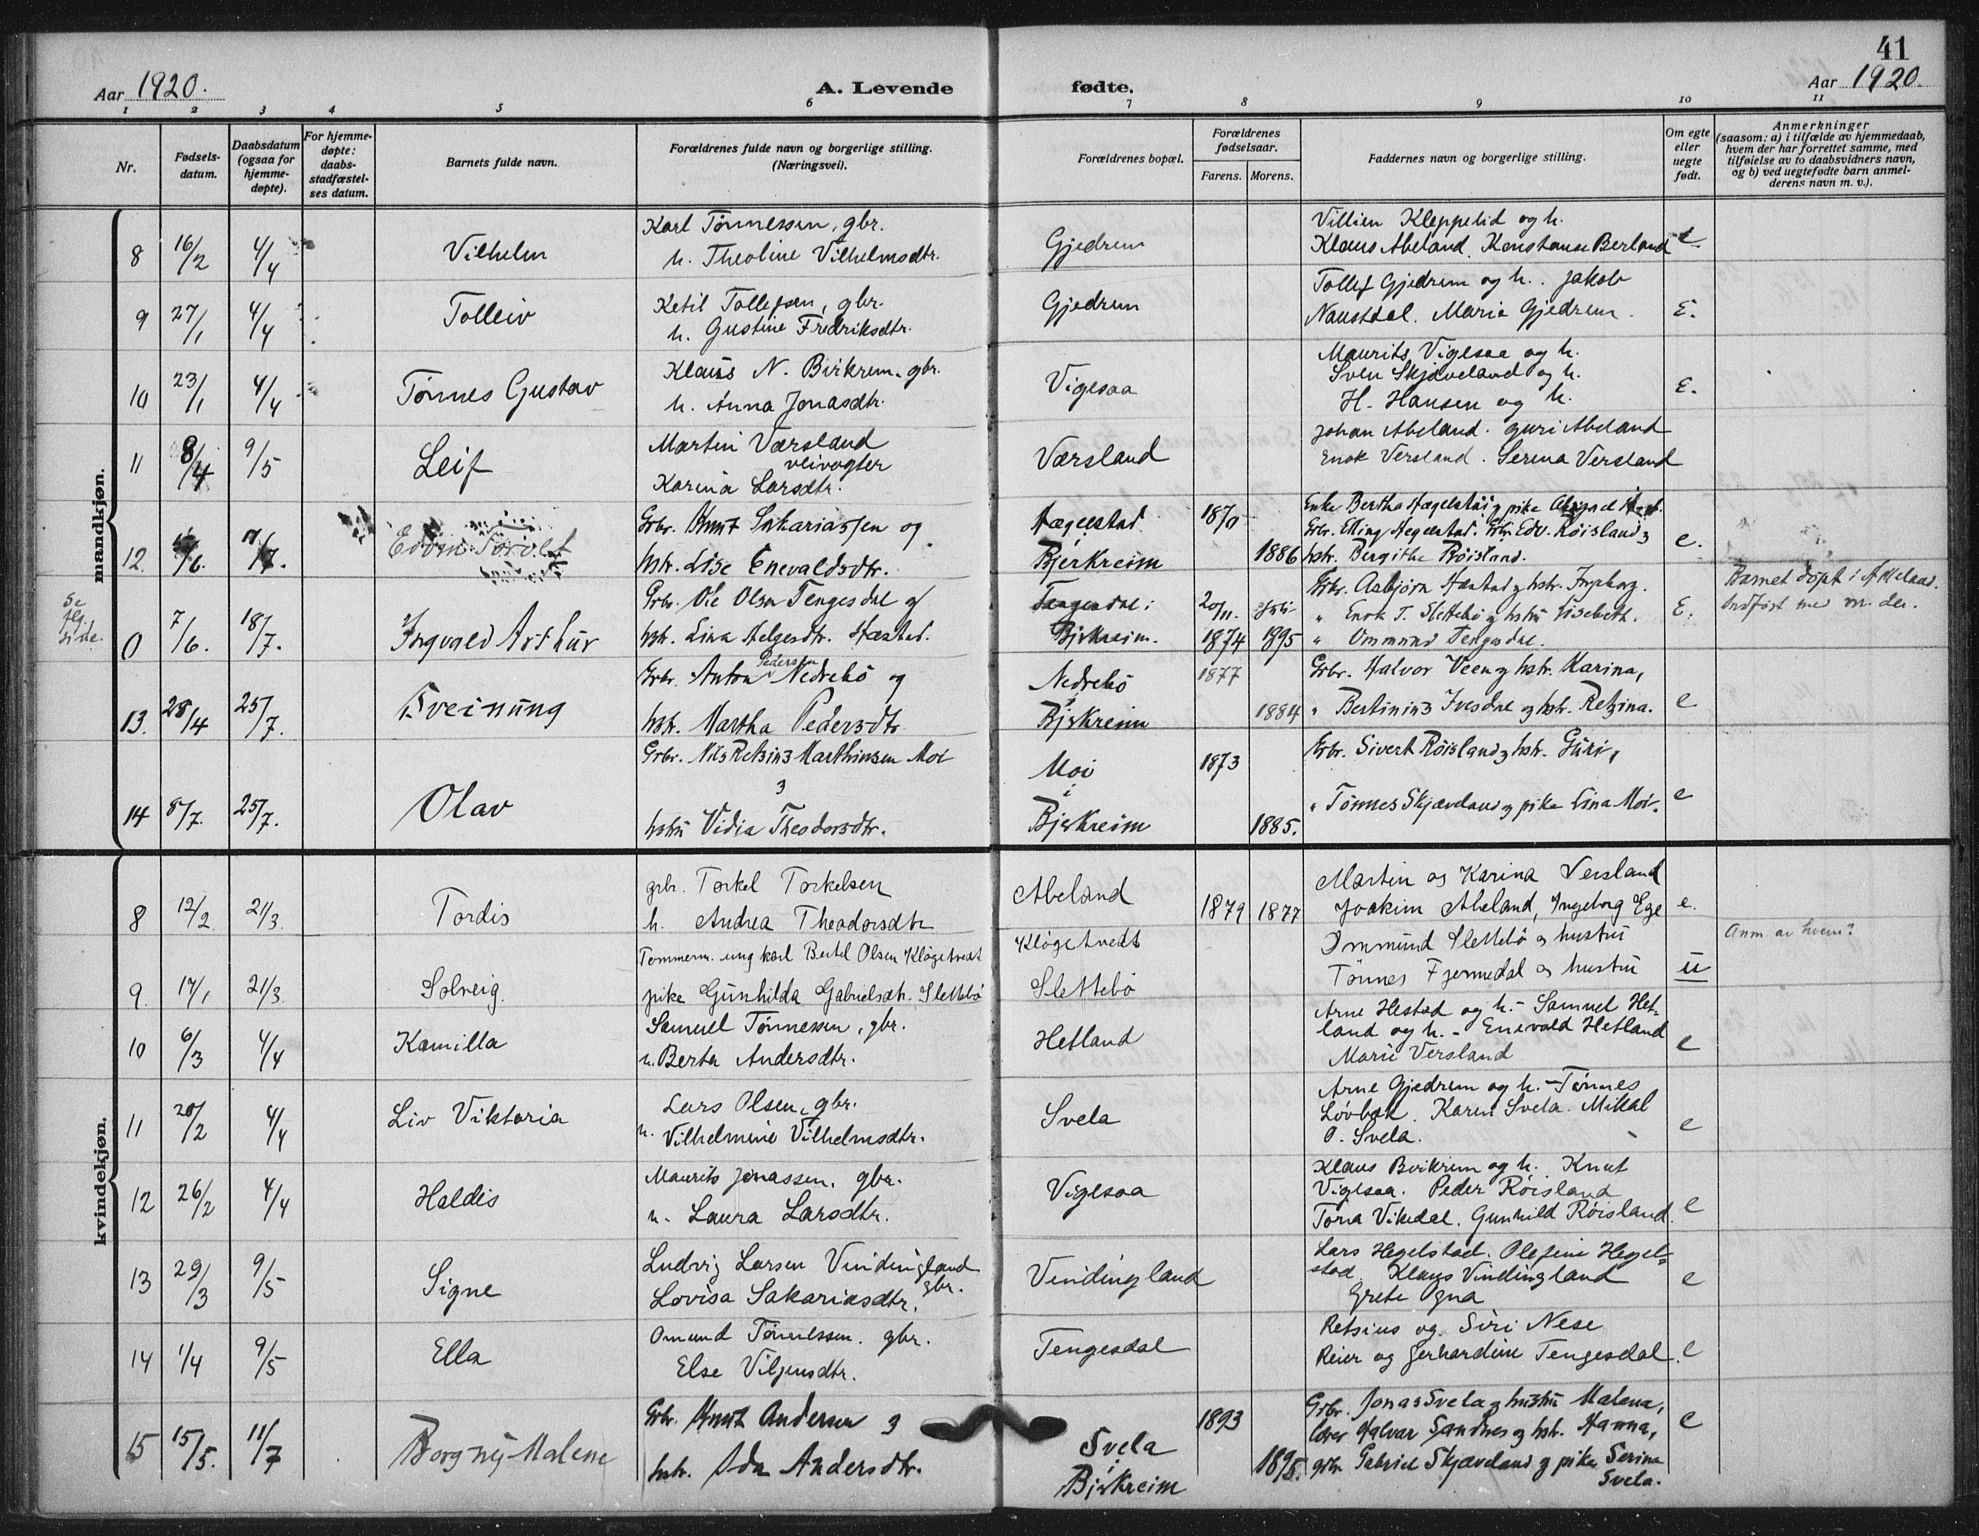 41
Aar 1920. A. Levende fødte. Aar 1920.
1 2 3 4 5 6 7 8 9 10 11
Nr.
Fødsels-
datum.
Daabsdatum
(ogsaa for
hjemme-
døpte).
For hjemme-
døpte:
daabs-
stadfæstel-
ses datum.
Barnets fulde navn.
Forældrenes fulde navn og borgerlige stilling.
(Næringsvei).
Forældrenes bopæl.
Forældrenes
fødselsaar.
Farens. Morens.
Faddernes navn og borgerlige stilling.
Om egte
eller
uegte
født.
Anmerkninger
(saasom: a) i tilfælde av hjemmedaab,
hvem der har forrettet samme, med
tilføielse av to daabsvidners navn,
og b) ved uegtefødte barn anmel-
derens navn m. v.).
mandkjøn.
8 16/2 4/4 Vilhelm
Karl Tønnessen, gbr.
h. Theoline Vilhelmsdtr.
Gjedrem
Villien Kleppelid og h.
Klaus Abeland. Konstanse Berland e
9 27/1 4/4 Tolleiv
Ketil Tollefsen, gbr.
h. Gustine Fredriksdtr.
Gjedrem
Tollef Gjedrem og h. Jakob
Naustdal. Marie Gjedrem. E.
10 23/1 4/4 Tønnes Gustav
Klaus N. Birkrem. gbr.
h. Anna Jonasdtr.
Vigesaa
Maurits Vigesaa og h.
Sven Skjæveland og h.
H. Hansen og h. E.
11 8/4 9/5 Leif
Martin Værsland
veivogter
Karina Larsdtr.
Værsland
Johan Abeland. Guri Abeland
Enok Versland. Serina Versland
12 /6. /7. Edvin Torolf
Grbr. Knut Sakariassen og
hstr. Lise Enevaldsdtr.
Hægelstad
Bjerkreim
1870 1886
Enke Bertha Hægelstad og pike
Grbr. Elling Hegelstad. Grbr. Edv. Røisland og
hstr. Bergithe Røisland. e.
Se
side.
0 7/6. 18/7. Ingvald Arthur
Grbr. Ole Olsen Tengesdal og
hstr. Lina Helgesdtr. Hæstad.
Tengesdal i
Bjerkreim.
20/11. 1874 1895
Grbr. Asbjørn Hæstad og hstr. Ingeborg.
" Enok T. Slettebø og hustru Lisebeth.
" Ommund Tengesdal. E.
Barnet døpt i
Indført med m. der.
13. 28/4 25/7. Sveinung
Grbr. Anton Pedersen Nedrebø og
hstr. Martha Pedersdtr
Nedrebø
i
Bjerkreim
1877 1884
Grbr. Halvor Veen og hstr. Karina,
" Bertinius Ivesdal og hstr. Retzina. e
14 8/7. 25/7. Olav
Grbr. Nils Retsius Marthinsen Moi
og
hstru Vidia Theodorsdtr.
Moi
i
Bjerkreim
1873 1885.
Grbr. Sivert Røisland og hstr. Guri,
" Tønnes Skjæveland og pike Lina Moi. e
kvindekjøn.
8 12/2 21/3. Tordis
grbr. Torkel Torkelsen
h. Andrea Theodorsdtr
Abeland
1879 1877
Martin og Karina Versland
Joakim Abeland, Ingeborg Ege e.
9. 17/1 21/3 Solveig
Tømmerm. ungkarl Bertel Olsen Kløgetvedt
pike Gunhilda Gabrielsdtr. Slettebø
Kløgetvedt
Slettebø
Ommund Slettebø og hustru
Tønnes Fjermedal og hustru u
Anm av hvem?
10 6/3 4/4 Kamilla
Samuel Tønnessen, gbr.
h. Berta Andersdtr.
Hetland
Arne Hestad og h. - Samuel Het-
land og h. - Enevald Hetland
Marie Versland e
11 20/2 4/4 Liv Viktoria
Lars Olsen, gbr.
h. Vilhelmine Vilhelmsdtr.
Svela
Arne Gjedrem og h. - Tønnes
Løvbæk. Karen Svela. Mikal
O. Svela. e
12 26/2 4/4 Haldis
Maurits Jonassen. gbr.
h. Laura Larsdtr.
Vigesaa
Klaus Birkrem og h. Knut
Vigesaa. Peder Røisland
Tona Vikedal. Gunhild Røisland. e
13 29/3 9/5 Signe
Ludvig Larsen Vindingland
gbr.
Lovisa Sakariasdtr.
Vindingland
Lars Hegelstad. Olefine Hegel-
stad. Klaus Vindingland
Grete Ogna e
14 1/4 9/5 Ella
Omund Tønnessen. gbr.
Else Viljensdtr.
Tengesdal
Retsius og Siri Nese
Reier og Gerhardine Tengesdal. e
15 15/5. 11/7 Borgny Malene
Grbr. Knut Andersen og
hstr. Ida Andersdtr.
Svela
i
Bjerkreim
1893 1895.
Grbr. Jonas Svela og hustru Malena,
lærer Halvar Sandnes og hstr. Hanna,
grbr Gabriel Skjæveland og pike Serina
Svela. e